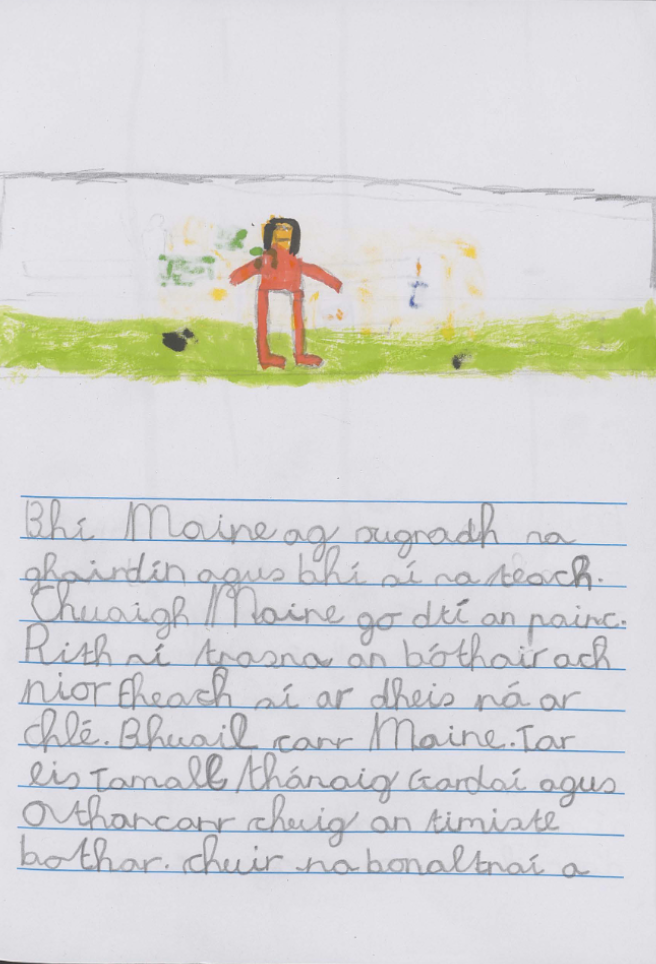 Bhí Maire ag sugradh na
ghairdín agus bhí sí na teach.
Chuaigh Maire go dtí an pairc.
Rith sí trasna an bóthair ach
nior fheach sí ar dheis ná ar
chlé. Bhuail carr Maire. Tar
eis Tamall tháinaig Gardaí agus
Otharcarr chuig an timiste
bothar. chuir na bonaltraí a